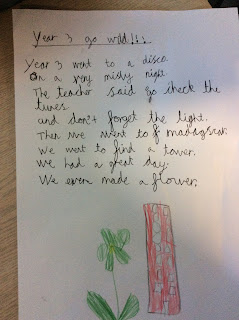 Year 3 go wild!!!
Year 3 went to a disco
On a very misty night
The teacher said go check the
tunes
and don't forget the light.
Then we went to madagascar.
We went to find a tower.
We had a great day.
We even made a flower.